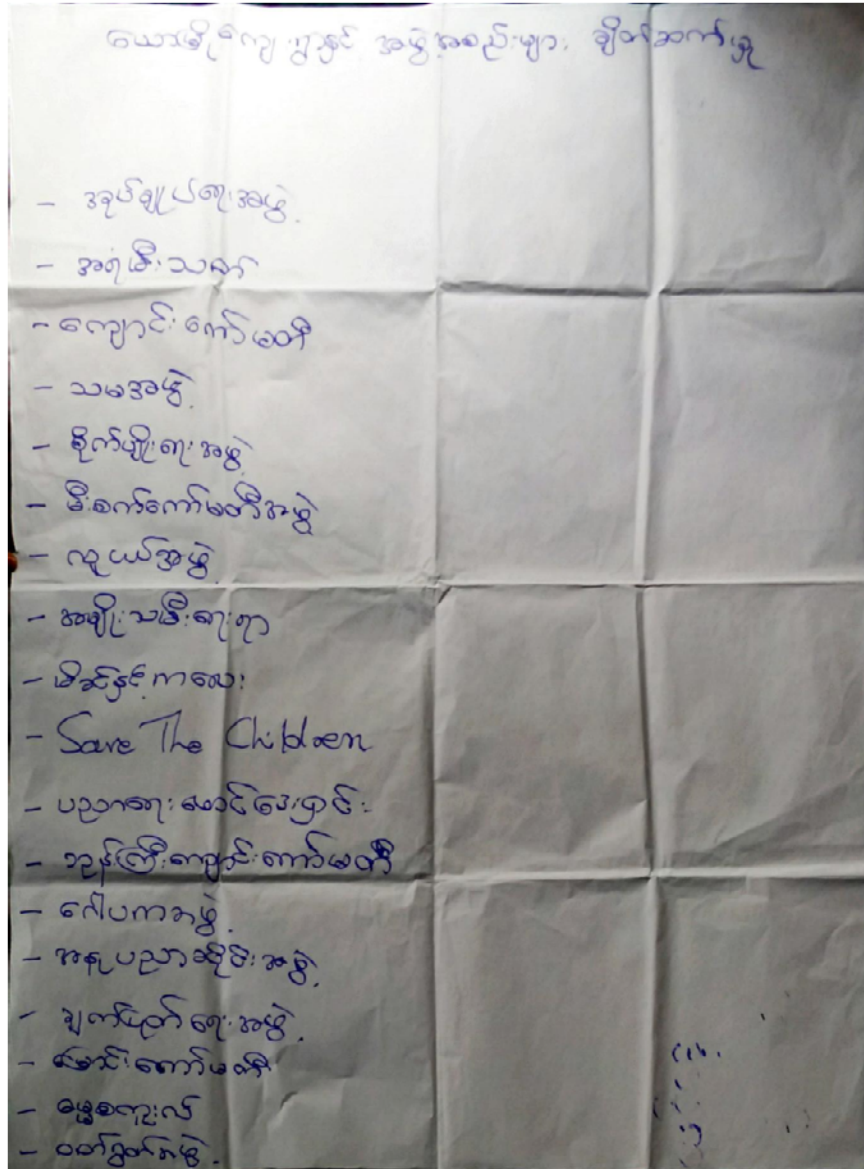 ယောမှို ကျေးရွာနှင့် အဖွဲ့အစည်းများ ချိတ်ဆက်မှု
- အုပ်ချုပ်ရေးအဖွဲ့
- အရံမီးသတ်
- ကျောင်းကော်မတီ
- သမအဖွဲ့
- စိုက်ပျိုးရေးအဖွဲ့
- မီးစက်ကော်မတီအဖွဲ့
- လူငယ်အဖွဲ့
- အမျိုးသမီးရေးရာ
- မိခင်နှင့်ကလေး
- Save The Children
- ပညာရေး
- ဘုန်းကြီးကျောင်းကော်မတီ
- ဂေါပကအဖွဲ့
- အနုပညာဆိုင်းအဖွဲ့
- ချက်ပြုတ်ရေးအဖွဲ့
- မြောင်းကော်မတီ
- ဓမ္မစကူးလ်
- ဝတ်ရွတ်အဖွဲ့